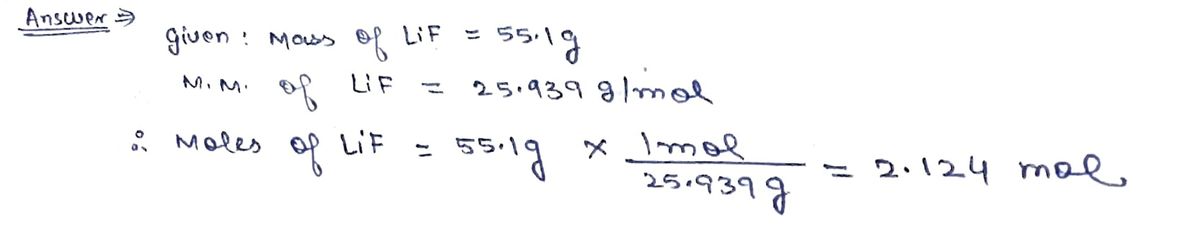 Answer ⇒
given : Mass of LiF = 55.1g
M.M. of LiF = 25.939 g/mol
∴ Moles of LiF = 55.1g × 1mol / 25.939g = 2.124 mol